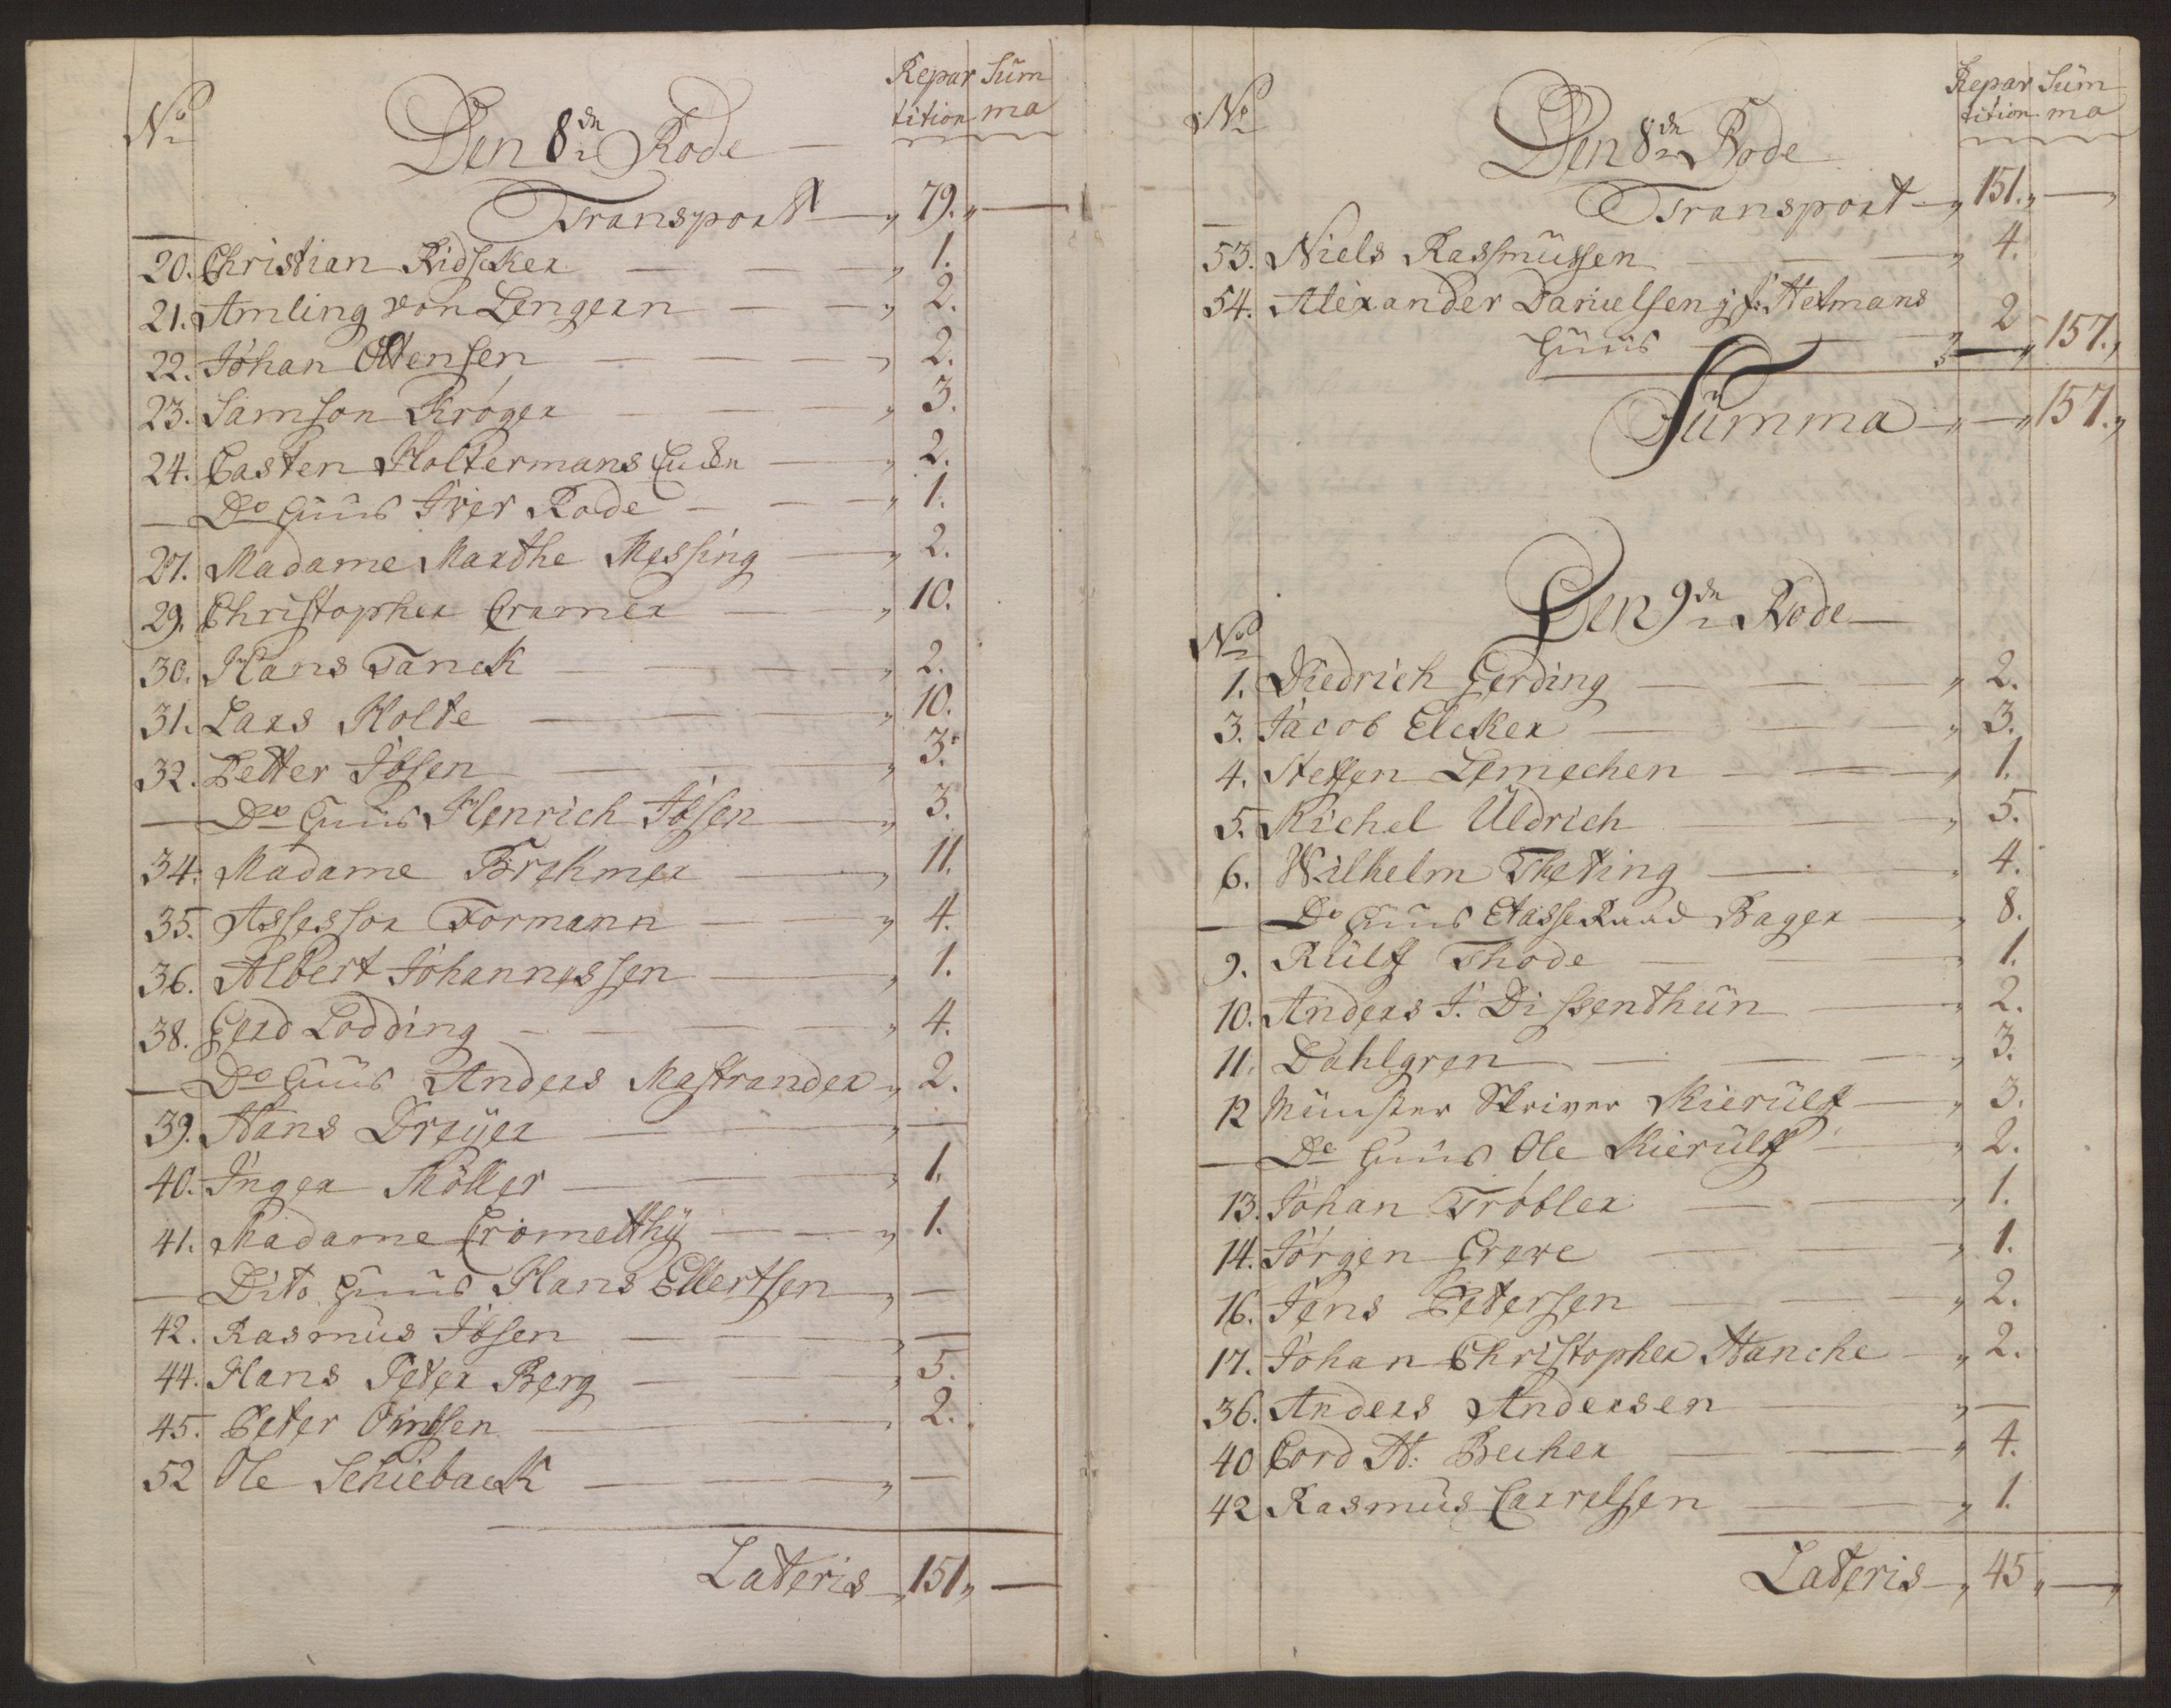 No
Repar Sum
tition ma
Den 8de Rode
Transport 79.
20. Christian Ridscker 1.
21. Amling von Lengern 2.
22. Johan Ottensen 2.
23. Samson Kröger 3.
24. Casten Holtermans 2.
Do Huus Iver Rode 1.
27. Madame Marthe Messing 2.
29. Christopher Cramer 10.
30. Hans Tanck 2.
31. Lars Holte 10.
32. Petter Ibsen 3.
Do Huus Henrich Ibsen 3.
34. Madame Brehmer 11.
35. Assessor Formann 4.
36. Albert Johannessen 1.
38. Gerd Lodding 4.
Do Huus Anders Mastrander 2.
39. Hans Dreyer —
40. Inger Möller 1.
41. Madame Cromethy 1.
Dito Huus Hans Ellertsen —
42. Rasmus Ibsen —
44. Hans Peter Berg 5.
45. Peter 2.
52 Ole Schieback —
Lateris 151 —
No
Repar Sum
tition ma
Den 8de Rode
Transport 151. —
53. Niels Rassmussen 4.
54. Alexander Danielsen j f: Helmans
Huus 2 157.
Summa — 157.
Den 9de Rode
No
1. Diedrich Gerding 2.
3. Jacob Elcker 3.
4. Steffen Lemechen 1.
5. Michel Uldrich 5.
6. Wilhelm Theting 4.
Do Huus EtatsRaad Bager 8.
9. Rulff Thode 1.
10. Anders J. Dissenthun 2.
11. Dahlgren 3.
12 Münster Skriver Kierulff 3.
Do Huus Ole Kierulff 2.
13. Johan Tröbler 1.
14. Jörgen Greve 1.
16. Jens Petersen 2.
17. Johan Christopher Hanche 2.
36. Anders Andersen —
40 Cord H: Becher 4.
42 Rasmus Carrelsen 1.
Lateris 45 —